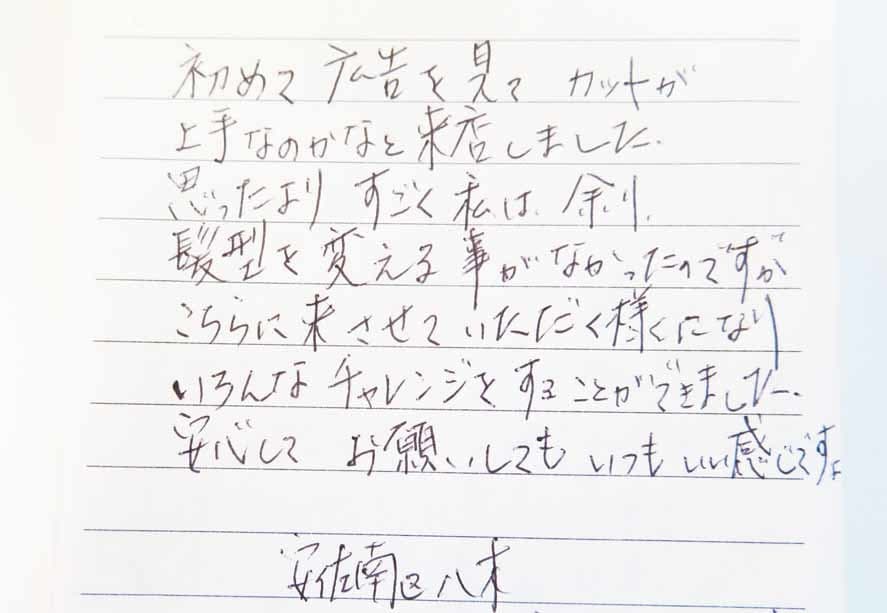 初めて 広告を見て カットが
上手なのかなと来店しました.
思ったより すごく 私は、余り、
髪型を変える事がなかったのですが
こちらに来させていただく様くになり
いろんなチャレンジをすることができました.
安心して お願いしても いつも いい感じです。
安佐南区八木